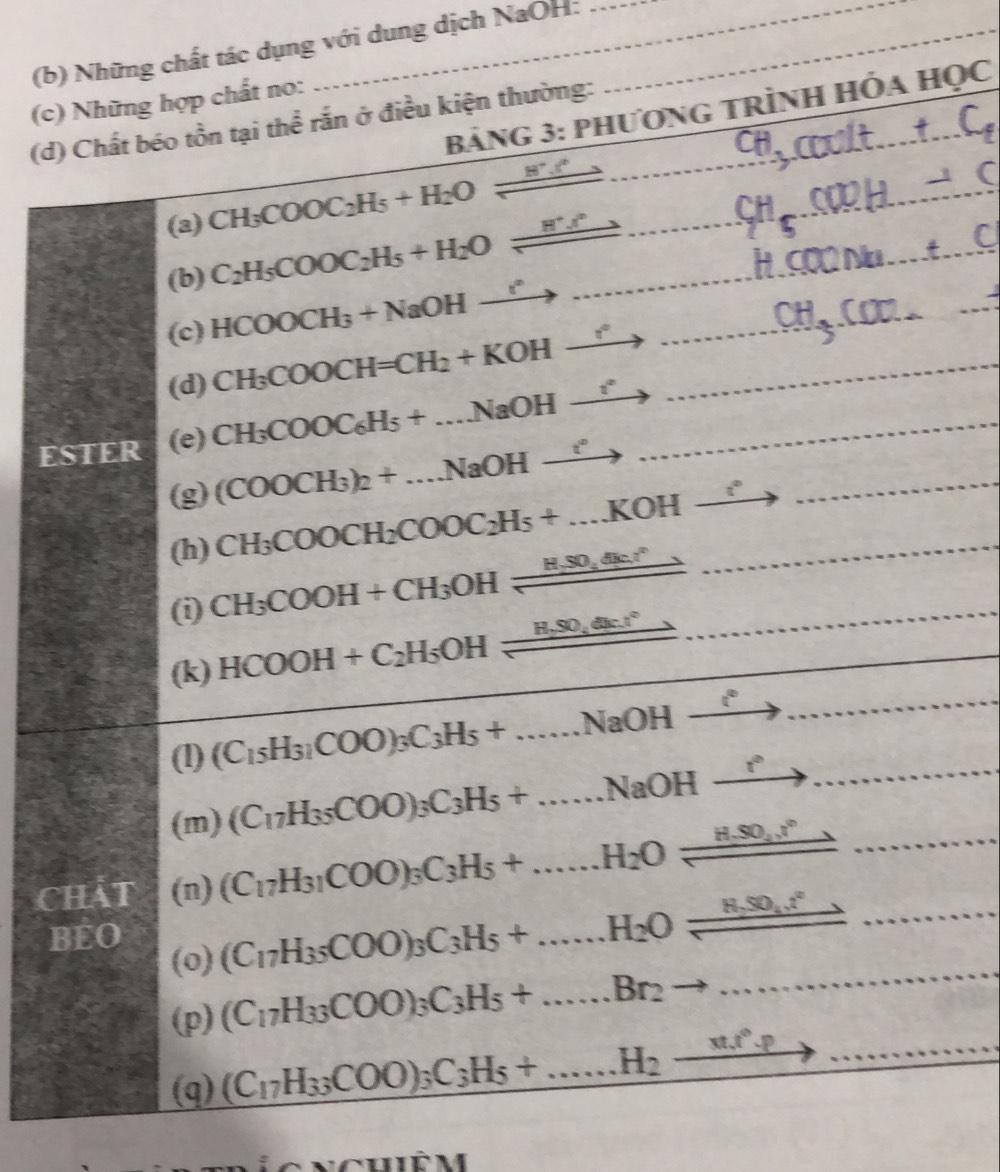 (b) Những chất tác dụng với dung dịch NaOH: ..........
(c) Những hợp chất no: ..........
(d) Chất béo tồn tại thể rắn ở điều kiện thường: ..........
BẢNG 3: PHƯƠNG TRÌNH HÓA HỌC
(a) CH₃COOC₂H₅ + H₂O ⇌ (H⁺, t°) CH₃COOH + C₂
(b) C₂H₅COOC₂H₅ + H₂O ⇌ (H⁺, t°) COOH + C
(c) HCOOCH₃ + NaOH →(t°) HCOONa + C
(d) CH₃COOCH=CH₂ + KOH →(t°) CH₃COO +
ESTER
(e) CH₃COOC₆H₅ + ....NaOH →(t°) ..........
(g) (COOCH₃)₂ + ....NaOH →(t°) ..........
(h) CH₃COOCH₂COOC₂H₅ + ....KOH →(t°) ..........
(i) CH₃COOH + CH₃OH ⇌ (H₂SO₄ đặc, t°) ..........
(k) HCOOH + C₂H₅OH ⇌ (H₂SO₄ đặc, t°) ..........
(l) (C₁₅H₃₁COO)₃C₃H₅ + ......NaOH →(t°) ..........
(m) (C₁₇H₃₅COO)₃C₃H₅ + ......NaOH →(t°) ..........
CHẤT BÉO
(n) (C₁₇H₃₁COO)₃C₃H₅ + ......H₂O ⇌ (H₂SO₄, t°) ..........
(o) (C₁₇H₃₅COO)₃C₃H₅ + ......H₂O ⇌ (H₂SO₄, t°) ..........
(p) (C₁₇H₃₃COO)₃C₃H₅ + ......Br₂ → ..........
(q) (C₁₇H₃₃COO)₃C₃H₅ + ......H₂ →(xt, t°, p) ..........
TRẮC NGHIỆM